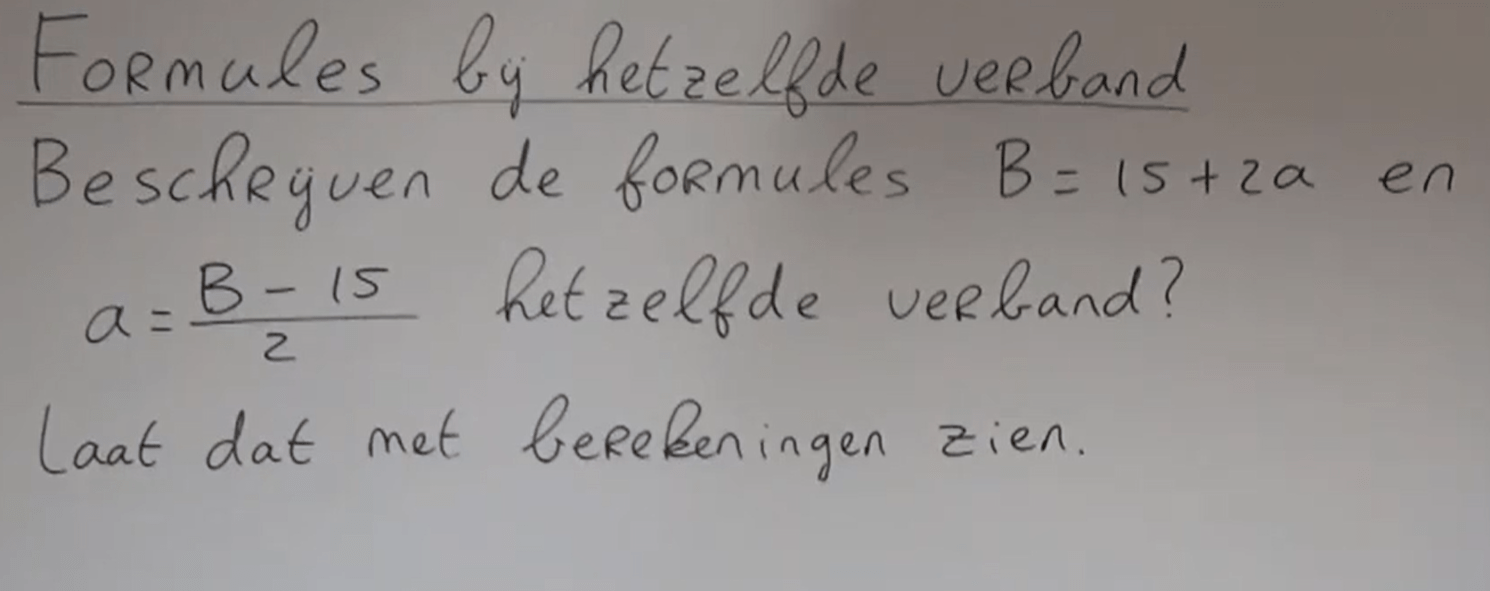 Formules bij hetzelfde verband
Beschrijven de formules B = 15 + 2a en
a = \frac{B - 15}{2} hetzelfde verband?
Laat dat met berekeningen zien.